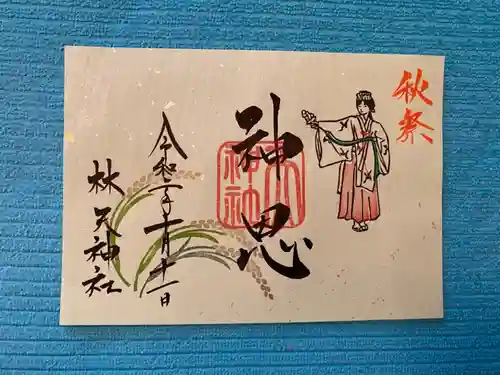 秋祭
神恩
令和二年十月十一日
林天神社